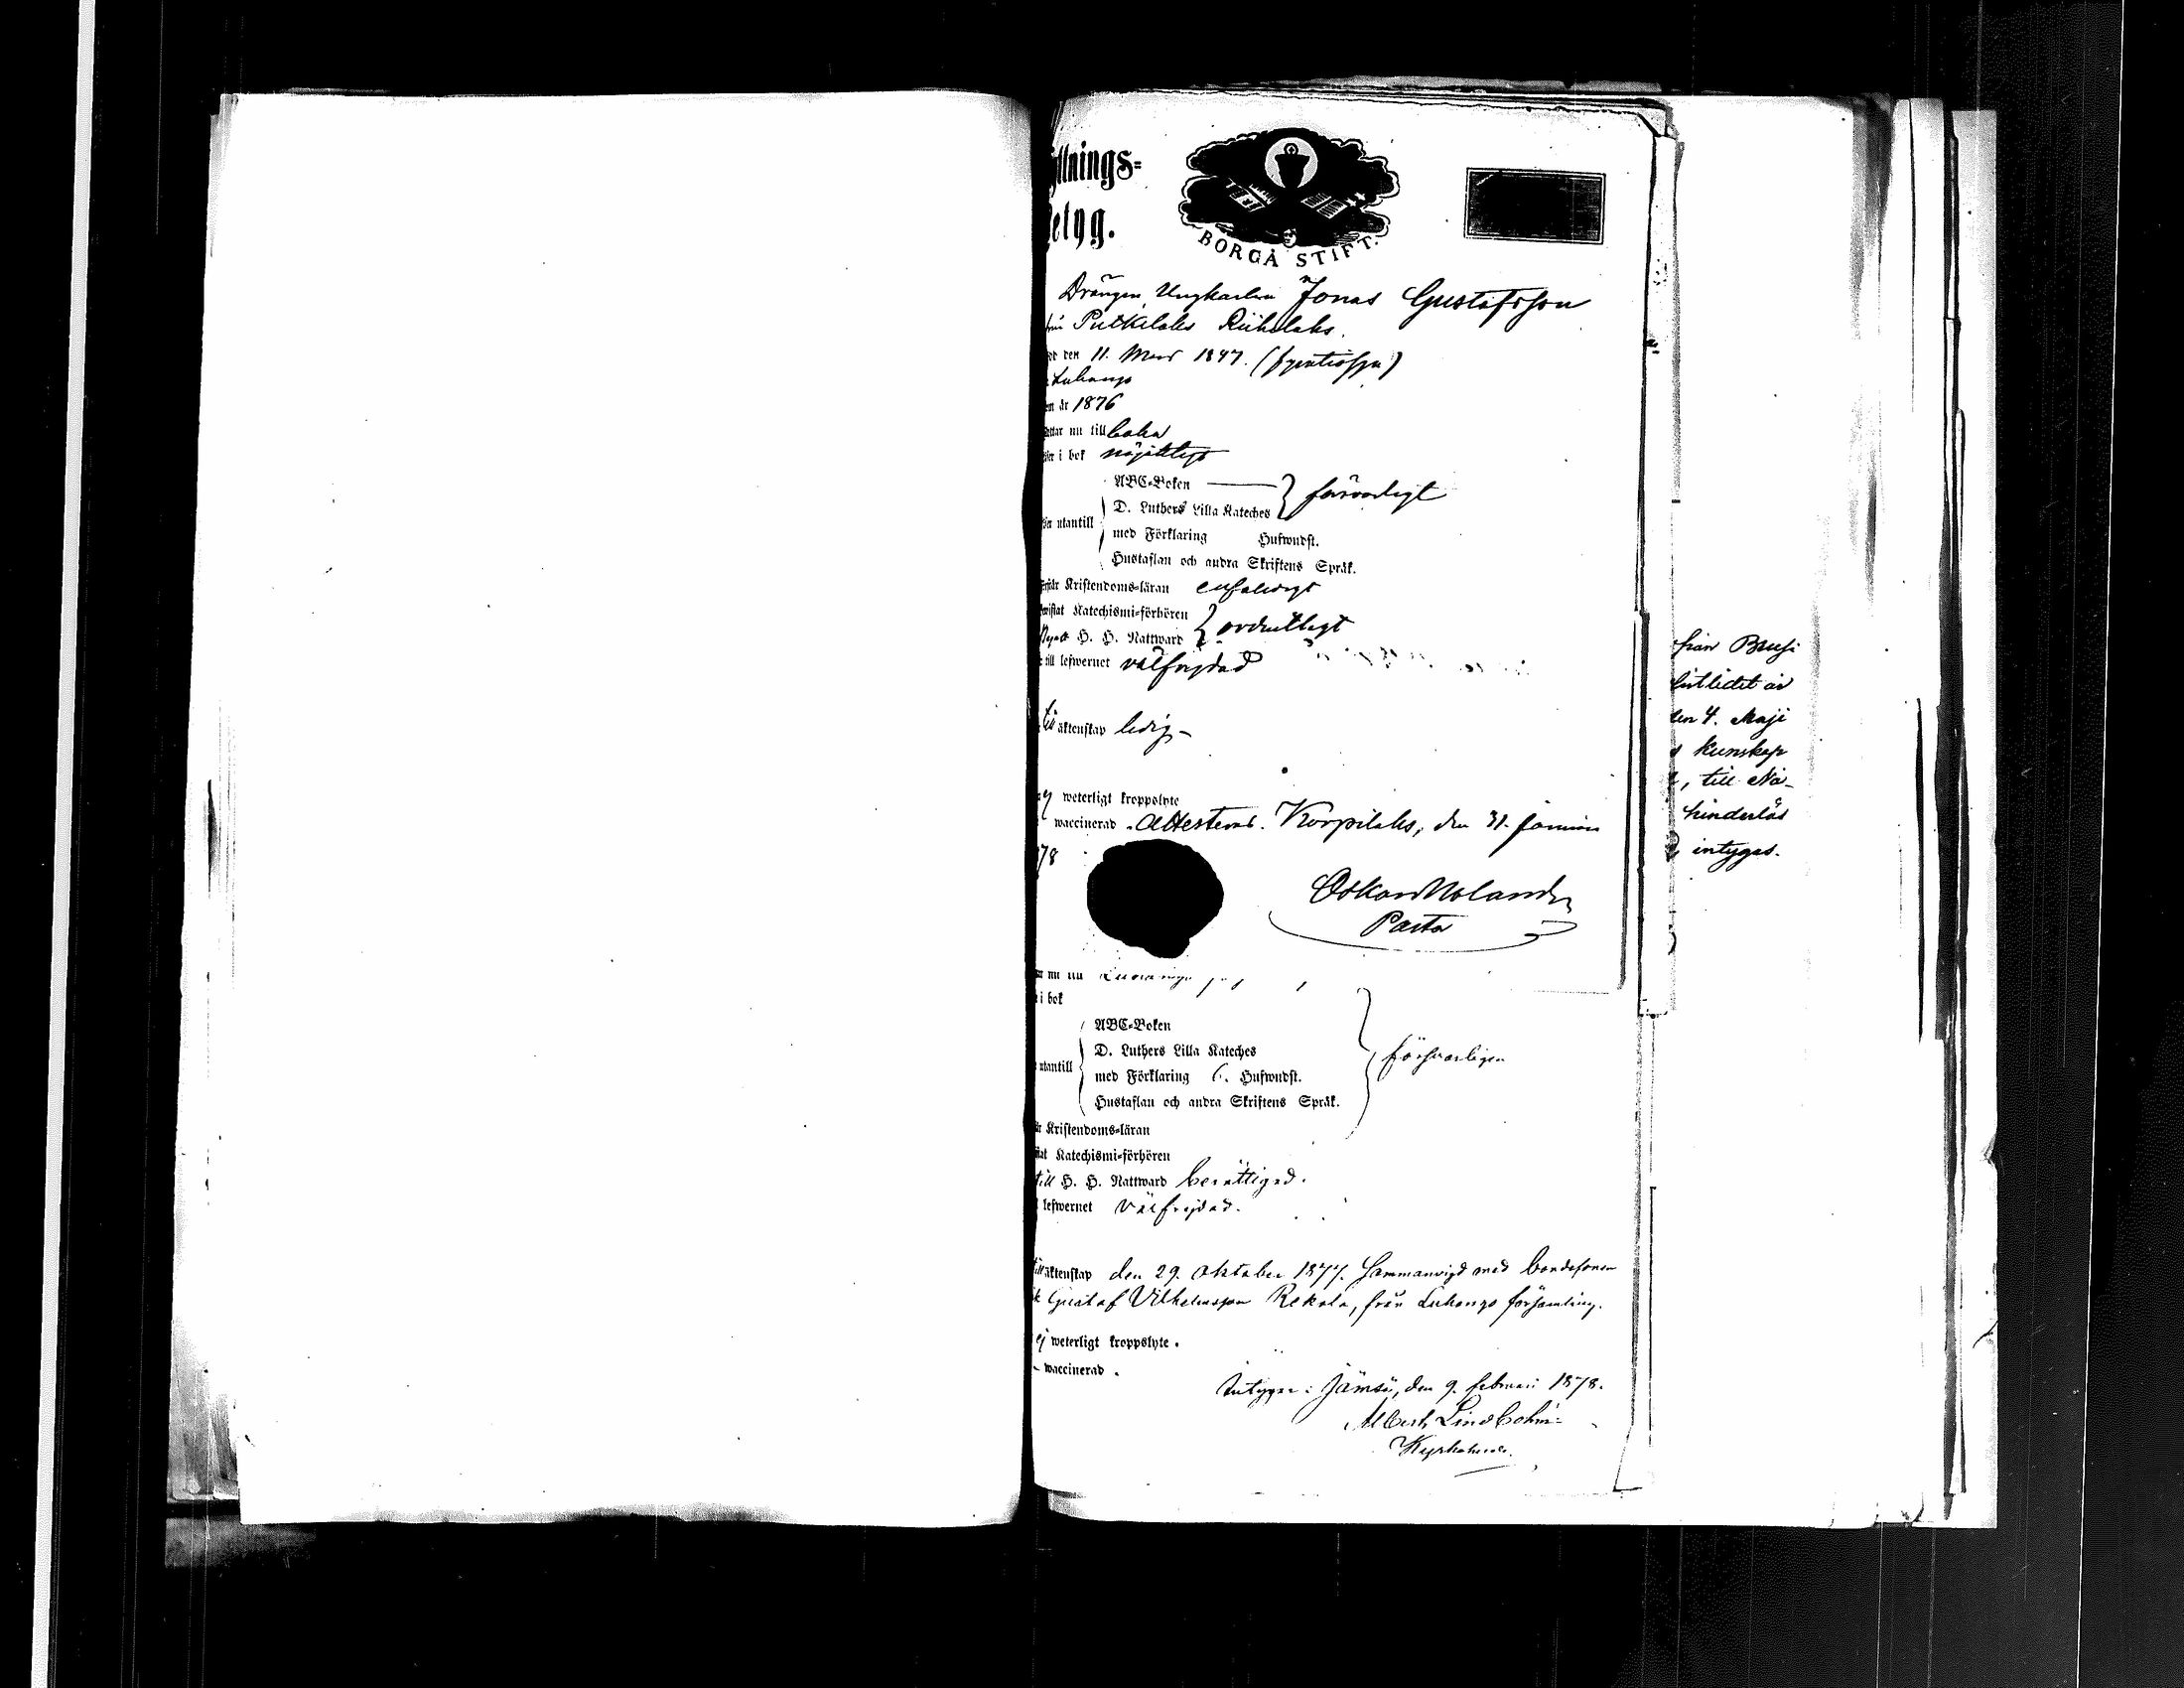 ttnings-
etyg.
BORGÅ STIFT.
Drängen, Ungkarlen Jonas Gustafsson
från Putkilaks Riihilaks.
den 11. Mars 1847.
Luhango
år 1876
nu till baka
i bok nöjaktigt
ABC-Boken
D. Luthers Lilla Kateches
försvarligt
utantill
med Förklaring Hufwudst.
Hustaflan och andra Skriftens Språk.
Kristendoms-läran enfaldigt
Katechismi-förhören
H. H. Nattward
ordentligt
till lefwernet välfrejdad
till äktenskap ledig
ej weterligt kroppslyte
waccinerad. Attesterad. Korpilaks, den 31. januari
78
Oskar Molander
Pastor
nu till Luhango
i bok
ABC-Boken
D. Luthers Lilla Kateches
utantill
med Förklaring 6. Hufwudst.
Hustaflan och andra Skriftens Språk.
försvarligen
Kristendoms-läran
Katechismi-förhören
till H. H. Nattward berättigad.
lefwernet välfrejdad.
till äktenskap den 29. oktober 1877. Sammanvigd med bondesonen
Gustaf Vilhelmsson Rekola, från Luhango församling.
ej weterligt kroppslyte.
waccinerad.
Intygar: Jämsä, den 9. februari 1878.
Albert Lindbohm
Kyrkoherde.
från Brusi
slutledet är
den 4. Maji
kunskap
till Na-
hinderlös
intygas.